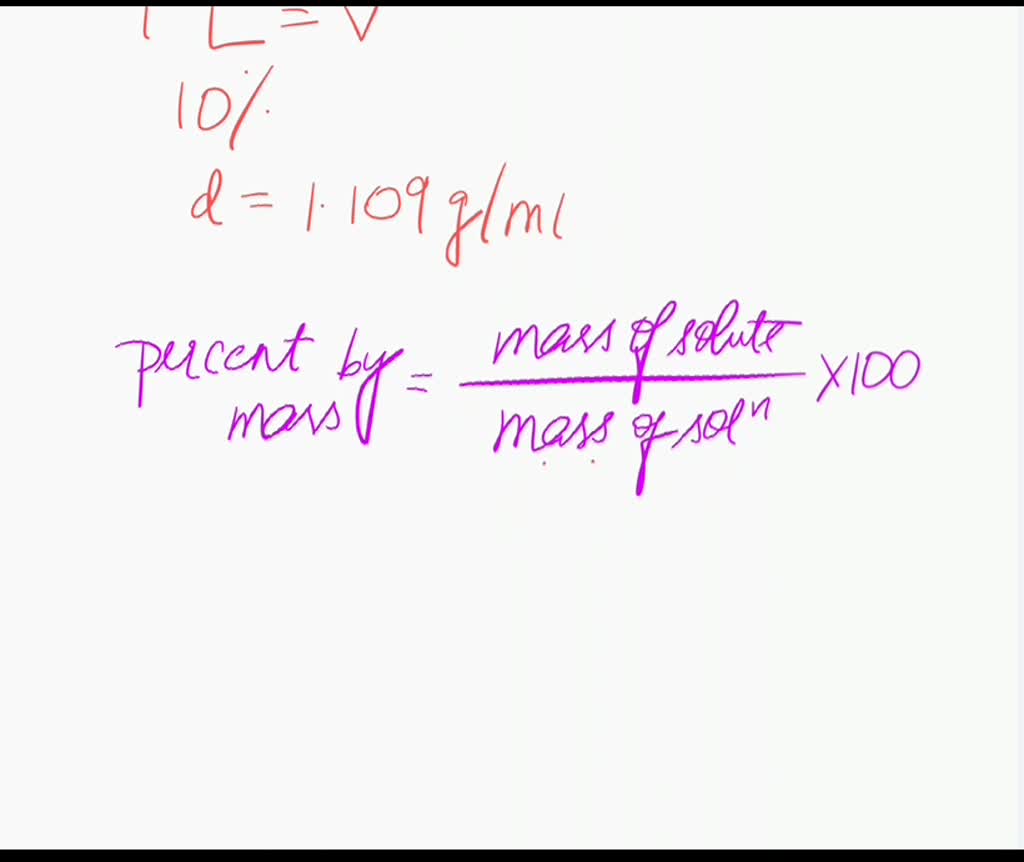 1 L = V
10%
d = 1.109 g/ml
percent by mass = mass of solute / mass of solⁿ × 100